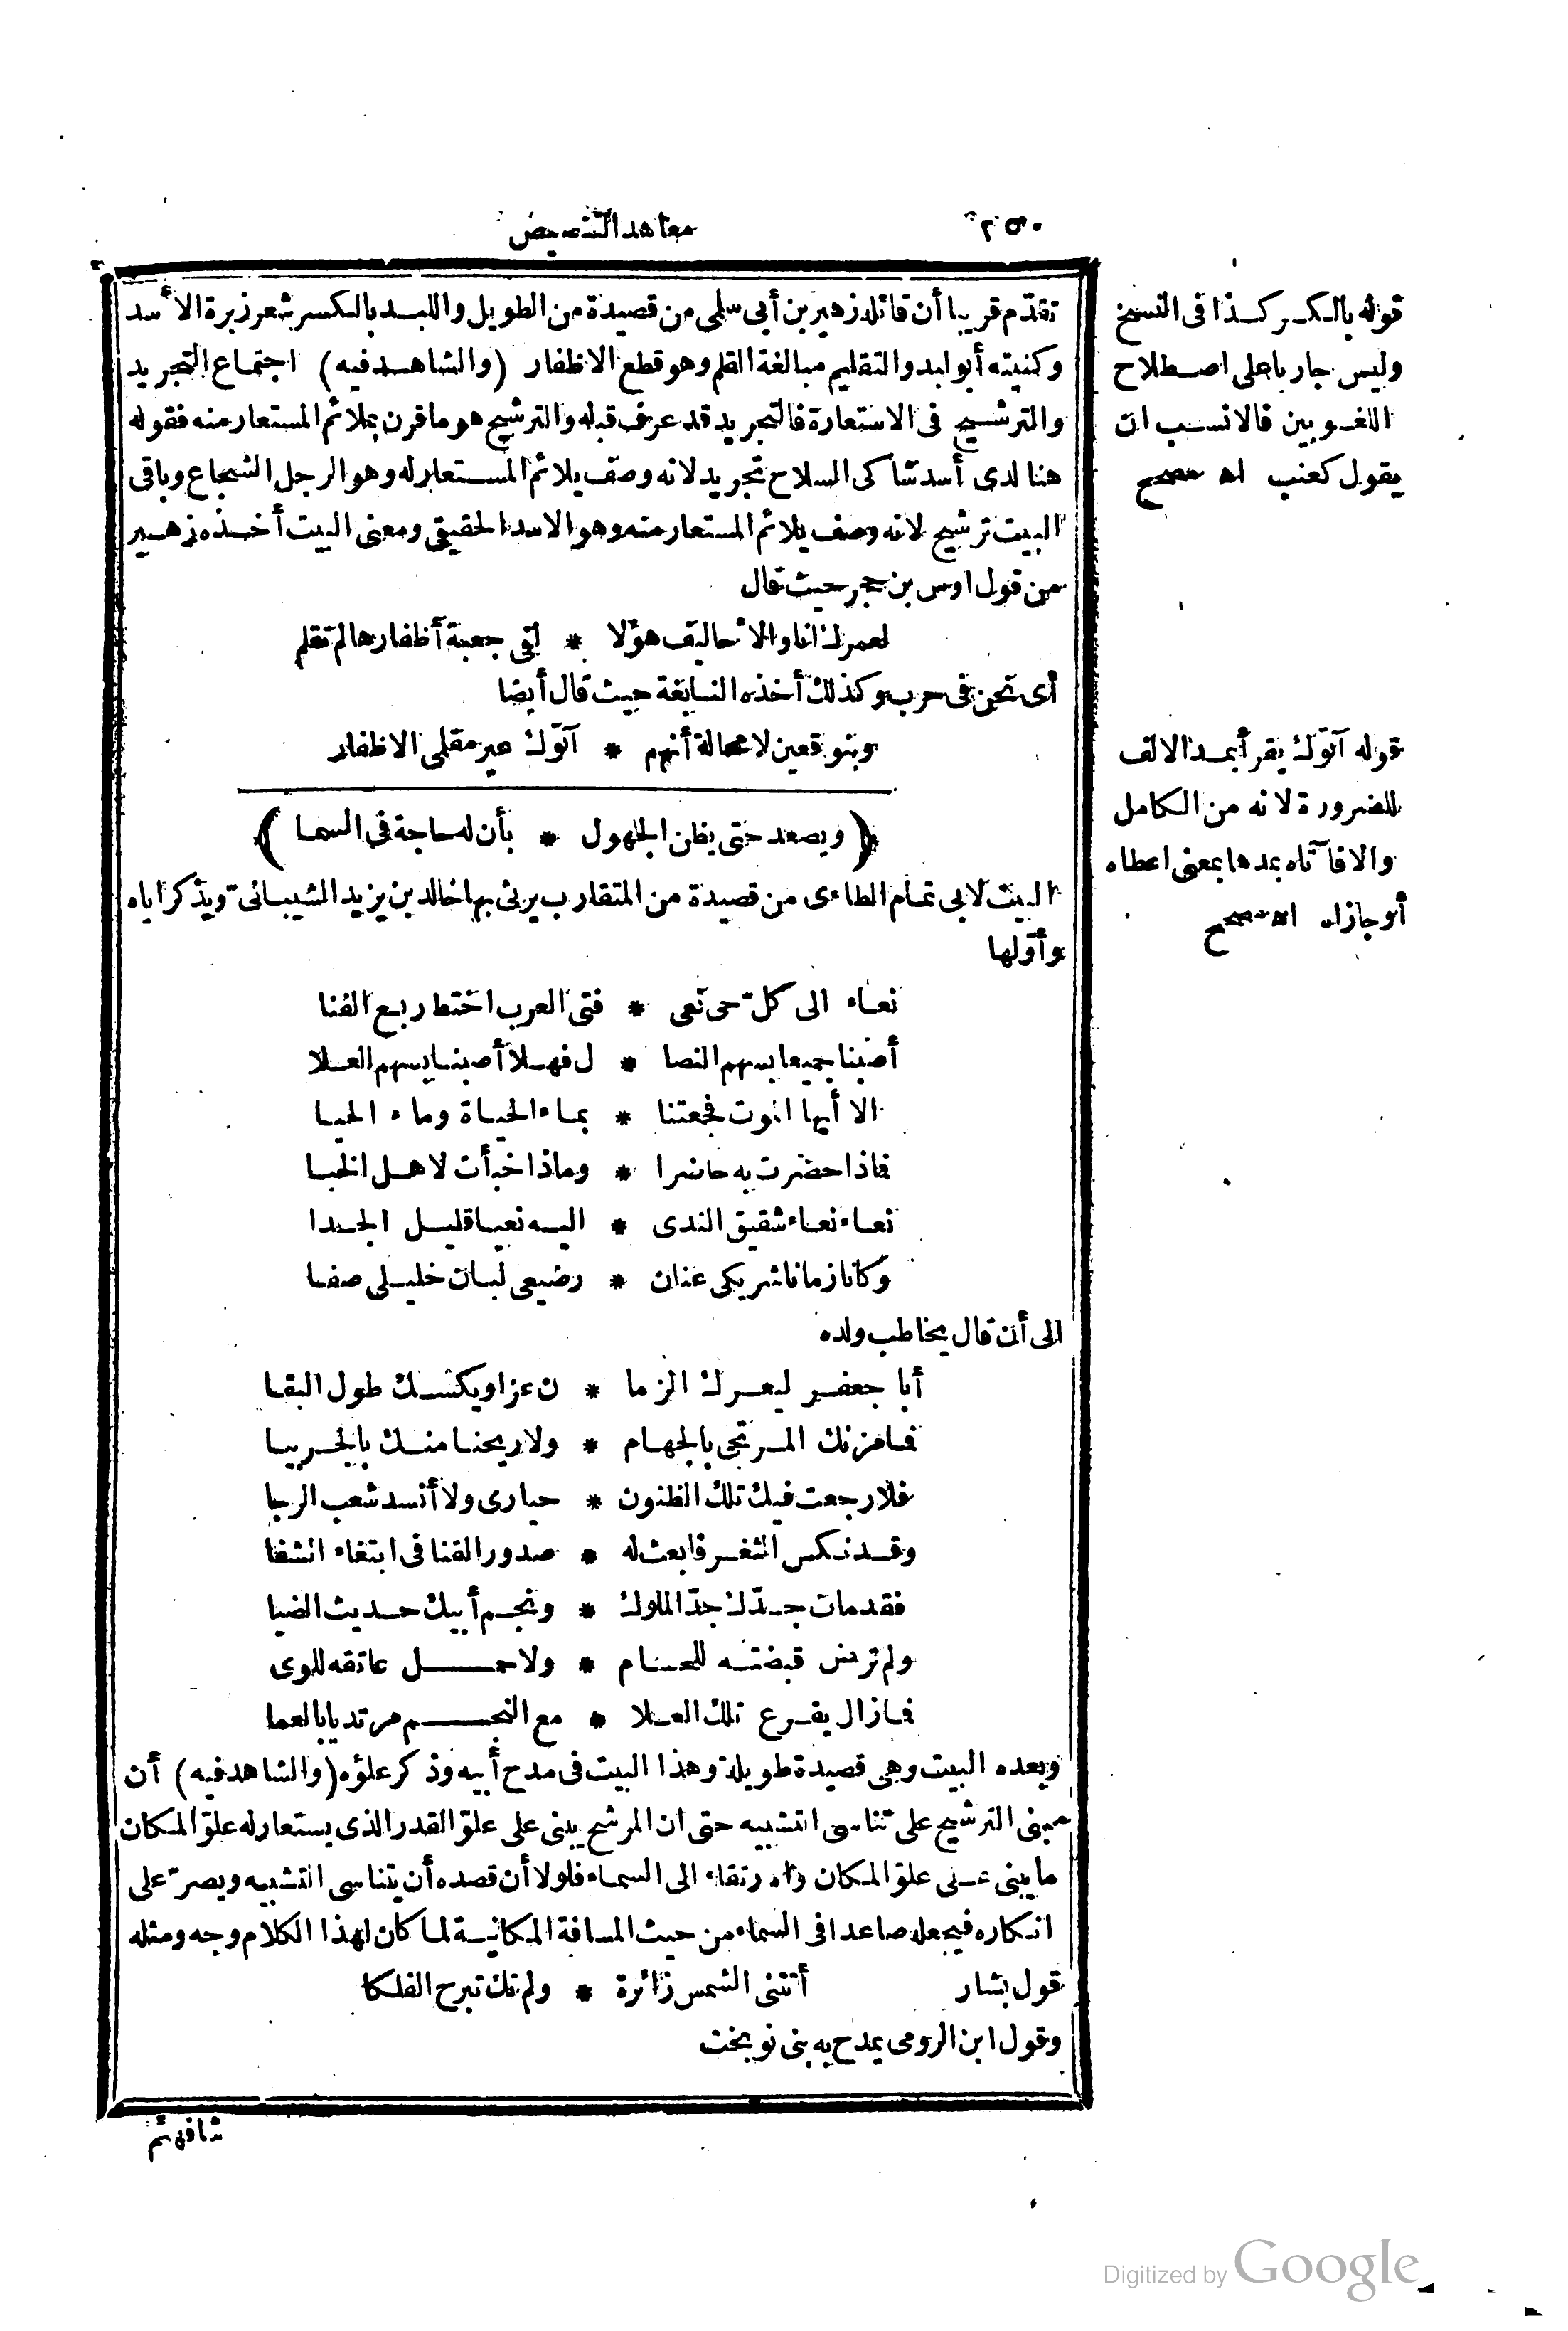 ٢٥٠
معاهد التنصيص
تقدّم قريبا أن قائله زهير بن أبى سلمى من قصيدة من الطويل واللبد بالكسر شعر زبرة الأسد
وكنيته أبو لبد والتقليم مبالغة القلم وهو قطع الاظفار (والشاهد فيه) اجتماع التجريد
والترشيح فى الاستعارة فالتجريد قد عرف قبله والترشيح هو ما قرن بملائم المستعار منه فقوله
هنا لدى أسد شاكى السلاح تجريد لانه وصف يلائم المستعار له وهو الرجل الشجاع وباقى
البيت ترشيح لانه وصف يلائم المستعار منه وهو الاسد الحقيقى ومعنى البيت أخذه زهير
من قول اوس بن حجر حيث قال
لعمرك انا والأحاليف هؤلا * لفى حقبة أظفارها لم تقلم
أى نحن فى حرب وكذلك أخذه النابغة حيث قال أيضا
وبنو قعين لا محالة أنهم * آتوك غير مقلمى الاظفار
(ويصعد حتى يظن الجهول * بأن له حاجة فى السما)
البيت لابى تمام الطاءى من قصيدة من المتقارب يرثى بها خالد بن يزيد الشيبانىّ ويذكر اباه
وأوّلها
نعاء الى كل حىّ نعى * فتى العرب اختط ربع الفنا
أصبنا جميعا بسهم النضا * ل فهلا أصبنا بسهم العلا
الا أيها الموت فجعتنا * بماء الحياة وماء الحيا
فماذا حضرت به حاضرا * وماذا خبأت لاهل الخبا
نعاء نعاء شقيق الندى * اليه نعيا قليل الجدا
وكانا زمانا شريكى عنان * رضيعى لبان خليلى صفا
الى أن قال يخاطب ولده
أبا جعفر ليعرك الزما * ن عزا ويكسك طول البقا
فما مزنك المرتجى بالجهام * ولا ريحنا منك بالجربيا
فلا رجعت فيك تلك الظنون * حيارى ولا أنسد شعب الرجا
وقد نكس الثغر فابعث له * صدور القنا فى ابتغاء الشفا
فقد مات جدّك جدّ الملوك * ونجم أبيك حديث الضيا
ولم ترض قبضته للحسام * ولا حمل عاتقه للوى
فما زال يقرع تلك العلا * مع النجم مرتديا بالعما
وبعده البيت وهى قصيدة طويلة وهذا البيت فى مدح أبيه وذكر علوّه (والشاهد فيه) أن
مبنى الترشيح على تناسى التشبيه حتى ان المرشح يبنى على علوّ القدر الذى يستعار له علوّ المكان
ما يبنى على علوّ المكان والارتقاء الى السماء فلولا أن قصده أن يتناسى التشبيه ويصرّ على
انكاره فيجعله صاعدا فى السماء من حيث المسافة المكانية لما كان لهذا الكلام وجه ومثله
قول بشار أتتنى الشمس زائرة * ولم تك تبرح الفلكا
وقول ابن الرومى يمدح به بنى نوبخت
شافهتم
قوله بالكسر كذا فى النسخ
وليس جاريا على اصطلاح
اللغويين فالانسب ان
يقول كعنب اه مصحح
قوله آتوك يقرأ بمد الالف
للضرورة لانه من الكامل
والا فآتاه بمدها بمعنى اعطاه
أو جازاه اه مصحح
Digitized by Google